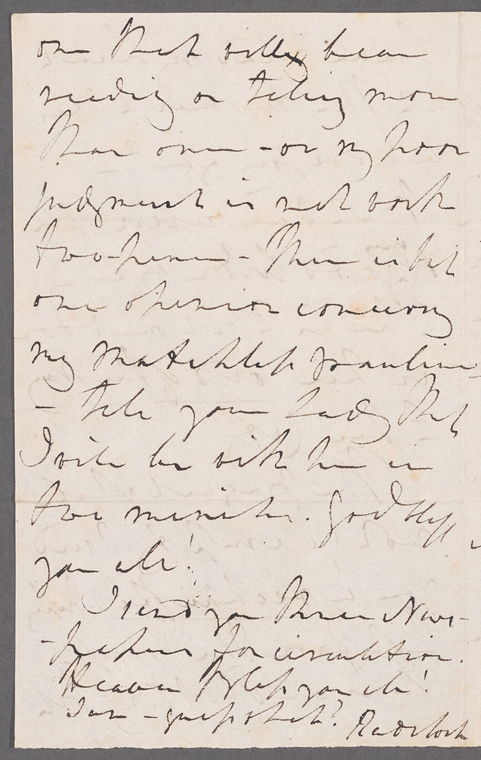 one that will bear
reading or telling more
than once - or my poor
judgment is not worth
two-pence - There is but
one opinion concerning
my matchless
- tell your Lady that
I will be with her in
two minutes. God bless
you all!
I send you three News-
-papers for circulation.
Heaven bless you all!
I am -